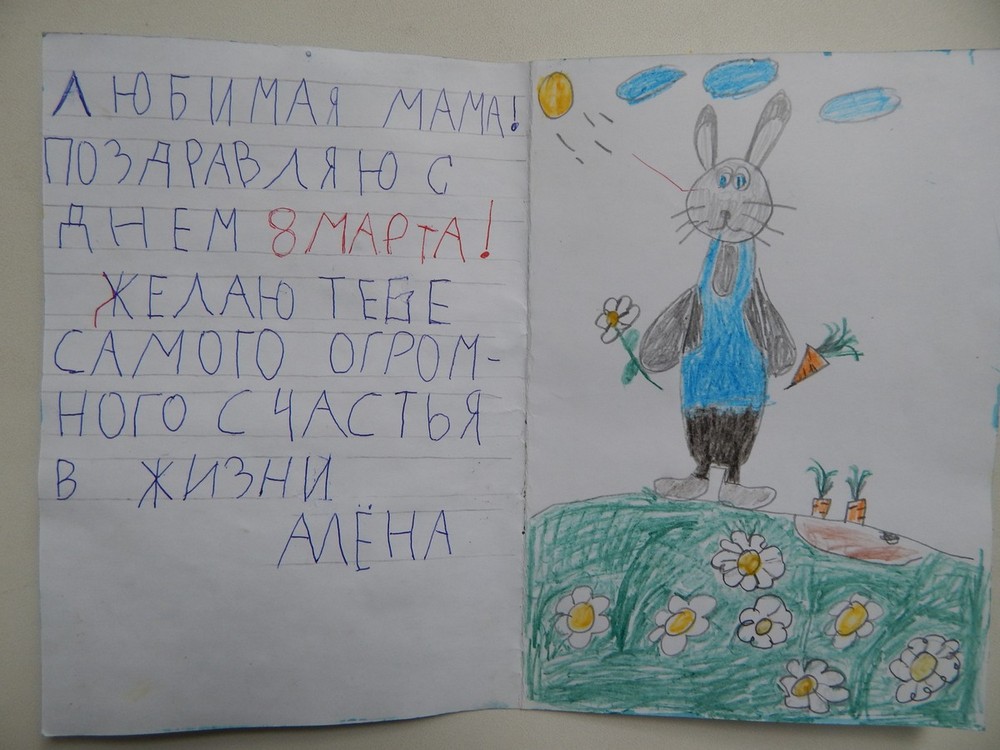 ЛЮБИМАЯ МАМА!
ПОЗДРАВЛЯЮ С
ДНЕМ 8 МАРТА!
ЖЕЛАЮ ТЕБЕ
САМОГО ОГРОМ-
НОГО СЧАСТЬЯ
В ЖИЗНИ
АЛЁНА